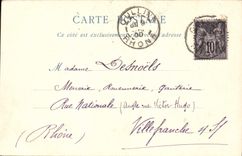 CARTE POSTALE
Ce côté est exclusivement
OULLINS
RHONE
10
Madame Desnoëls
Mercerie Bonneterie, ganterie
Rue Nationale (Angle rue Victor Hugo)
(Rhône) Villefranche s/S